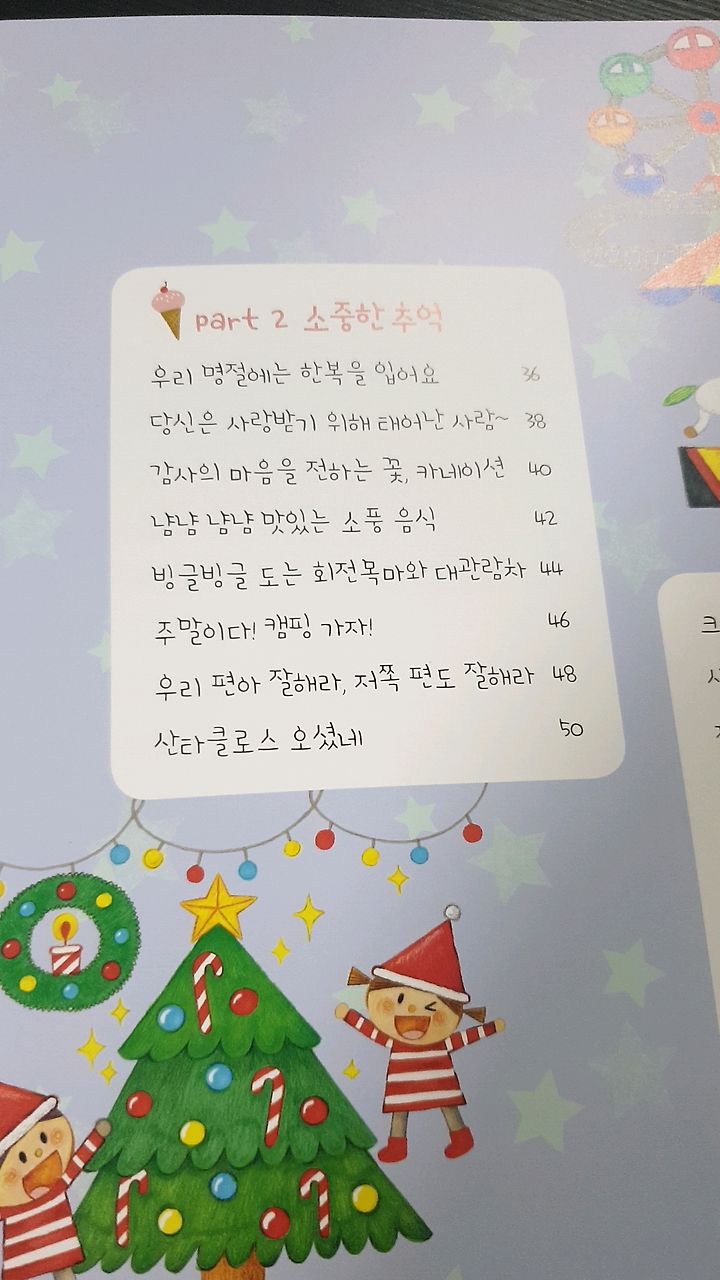 part 2 소중한 추억
우리 명절에는 한복을 입어요 36
당신은 사랑받기 위해 태어난 사람~ 38
감사의 마음을 전하는 꽃, 카네이션 40
냠냠 냠냠 맛있는 소풍 음식 42
빙글빙글 도는 회전목마와 대관람차 44
주말이다! 캠핑 가자! 46
우리 편아 잘해라, 저쪽 편도 잘해라 48
산타클로스 오셨네 50